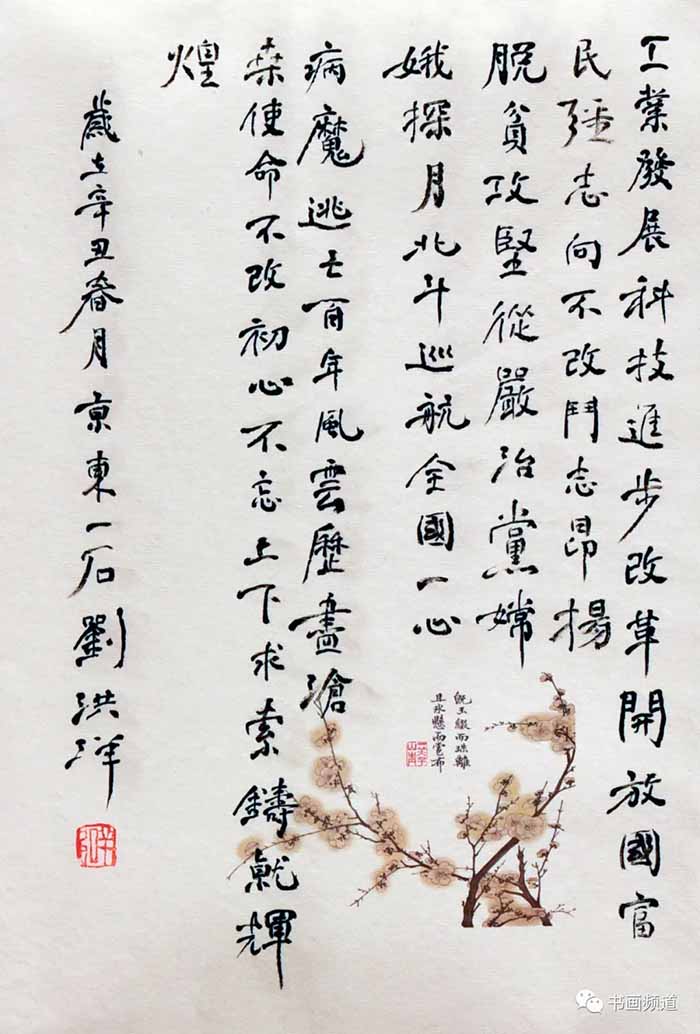 工業發展科技進步改革開放國富
民強志向不改鬥志昂揚
脫貧攻堅從嚴治黨嫦
娥探月北斗巡航全國一心
病魔逃亡百年風雲歷盡滄
桑使命不改初心不忘上下求索鑄就輝
煌
歲在辛丑春月京東一石劉洪洋
既玉綴而珠離
且冰懸而雹布
书画频道